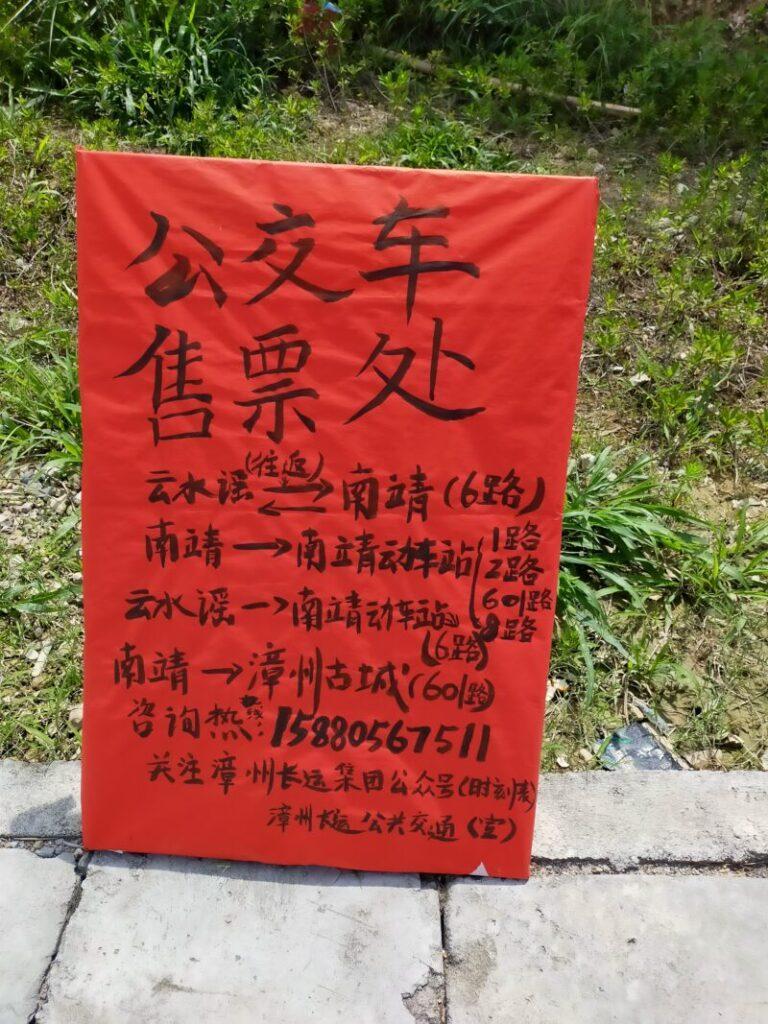 公交车
售票处
云水谣(往返)⇄南靖(6路)
南靖→南靖动车站(1路
2路
601路
8路
云水谣→南靖动车站
(6路)
南靖→漳州古城(601路)
咨询热线:15880567511
关注漳州长运集团公众号(时刻表)
漳州长运公共交通(宣)